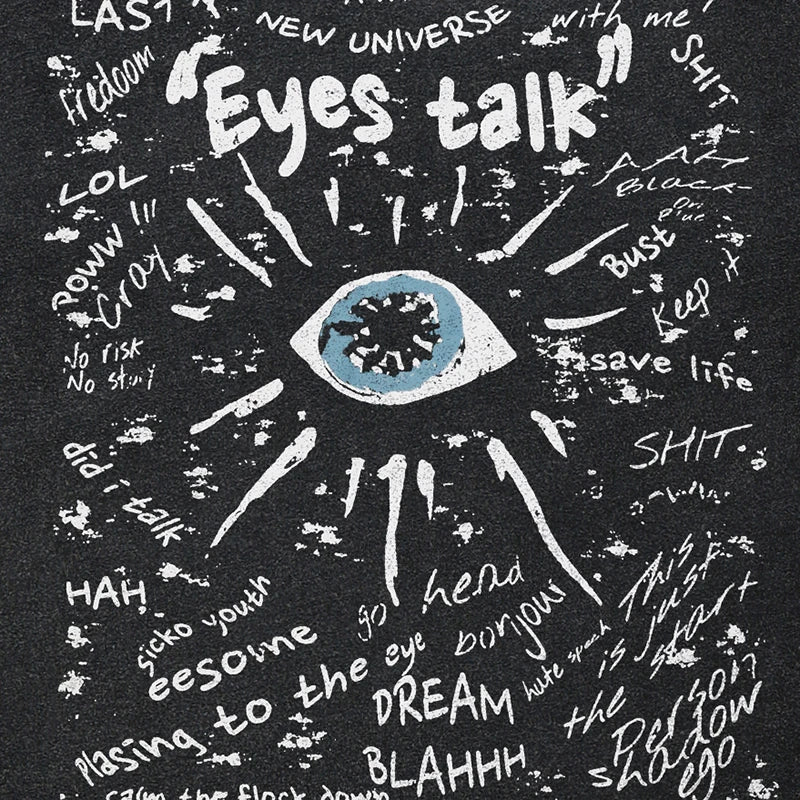 LAST
NEW UNIVERSE
with me!
Freedoom
SHIT
"Eyes talk"
LOL
AAAH
BLACK
On
Blue
POWW !!!
Cray
Bust
Keep it
No risk
No story
save life
did i talk
SHIT.
HAH
sicko youth
eesome
go
head
bonjour
This
is just
the start
hate speech
Plasing to the eye
DREAM
BLAHHH
Person
shadow
ego
calm the flock down